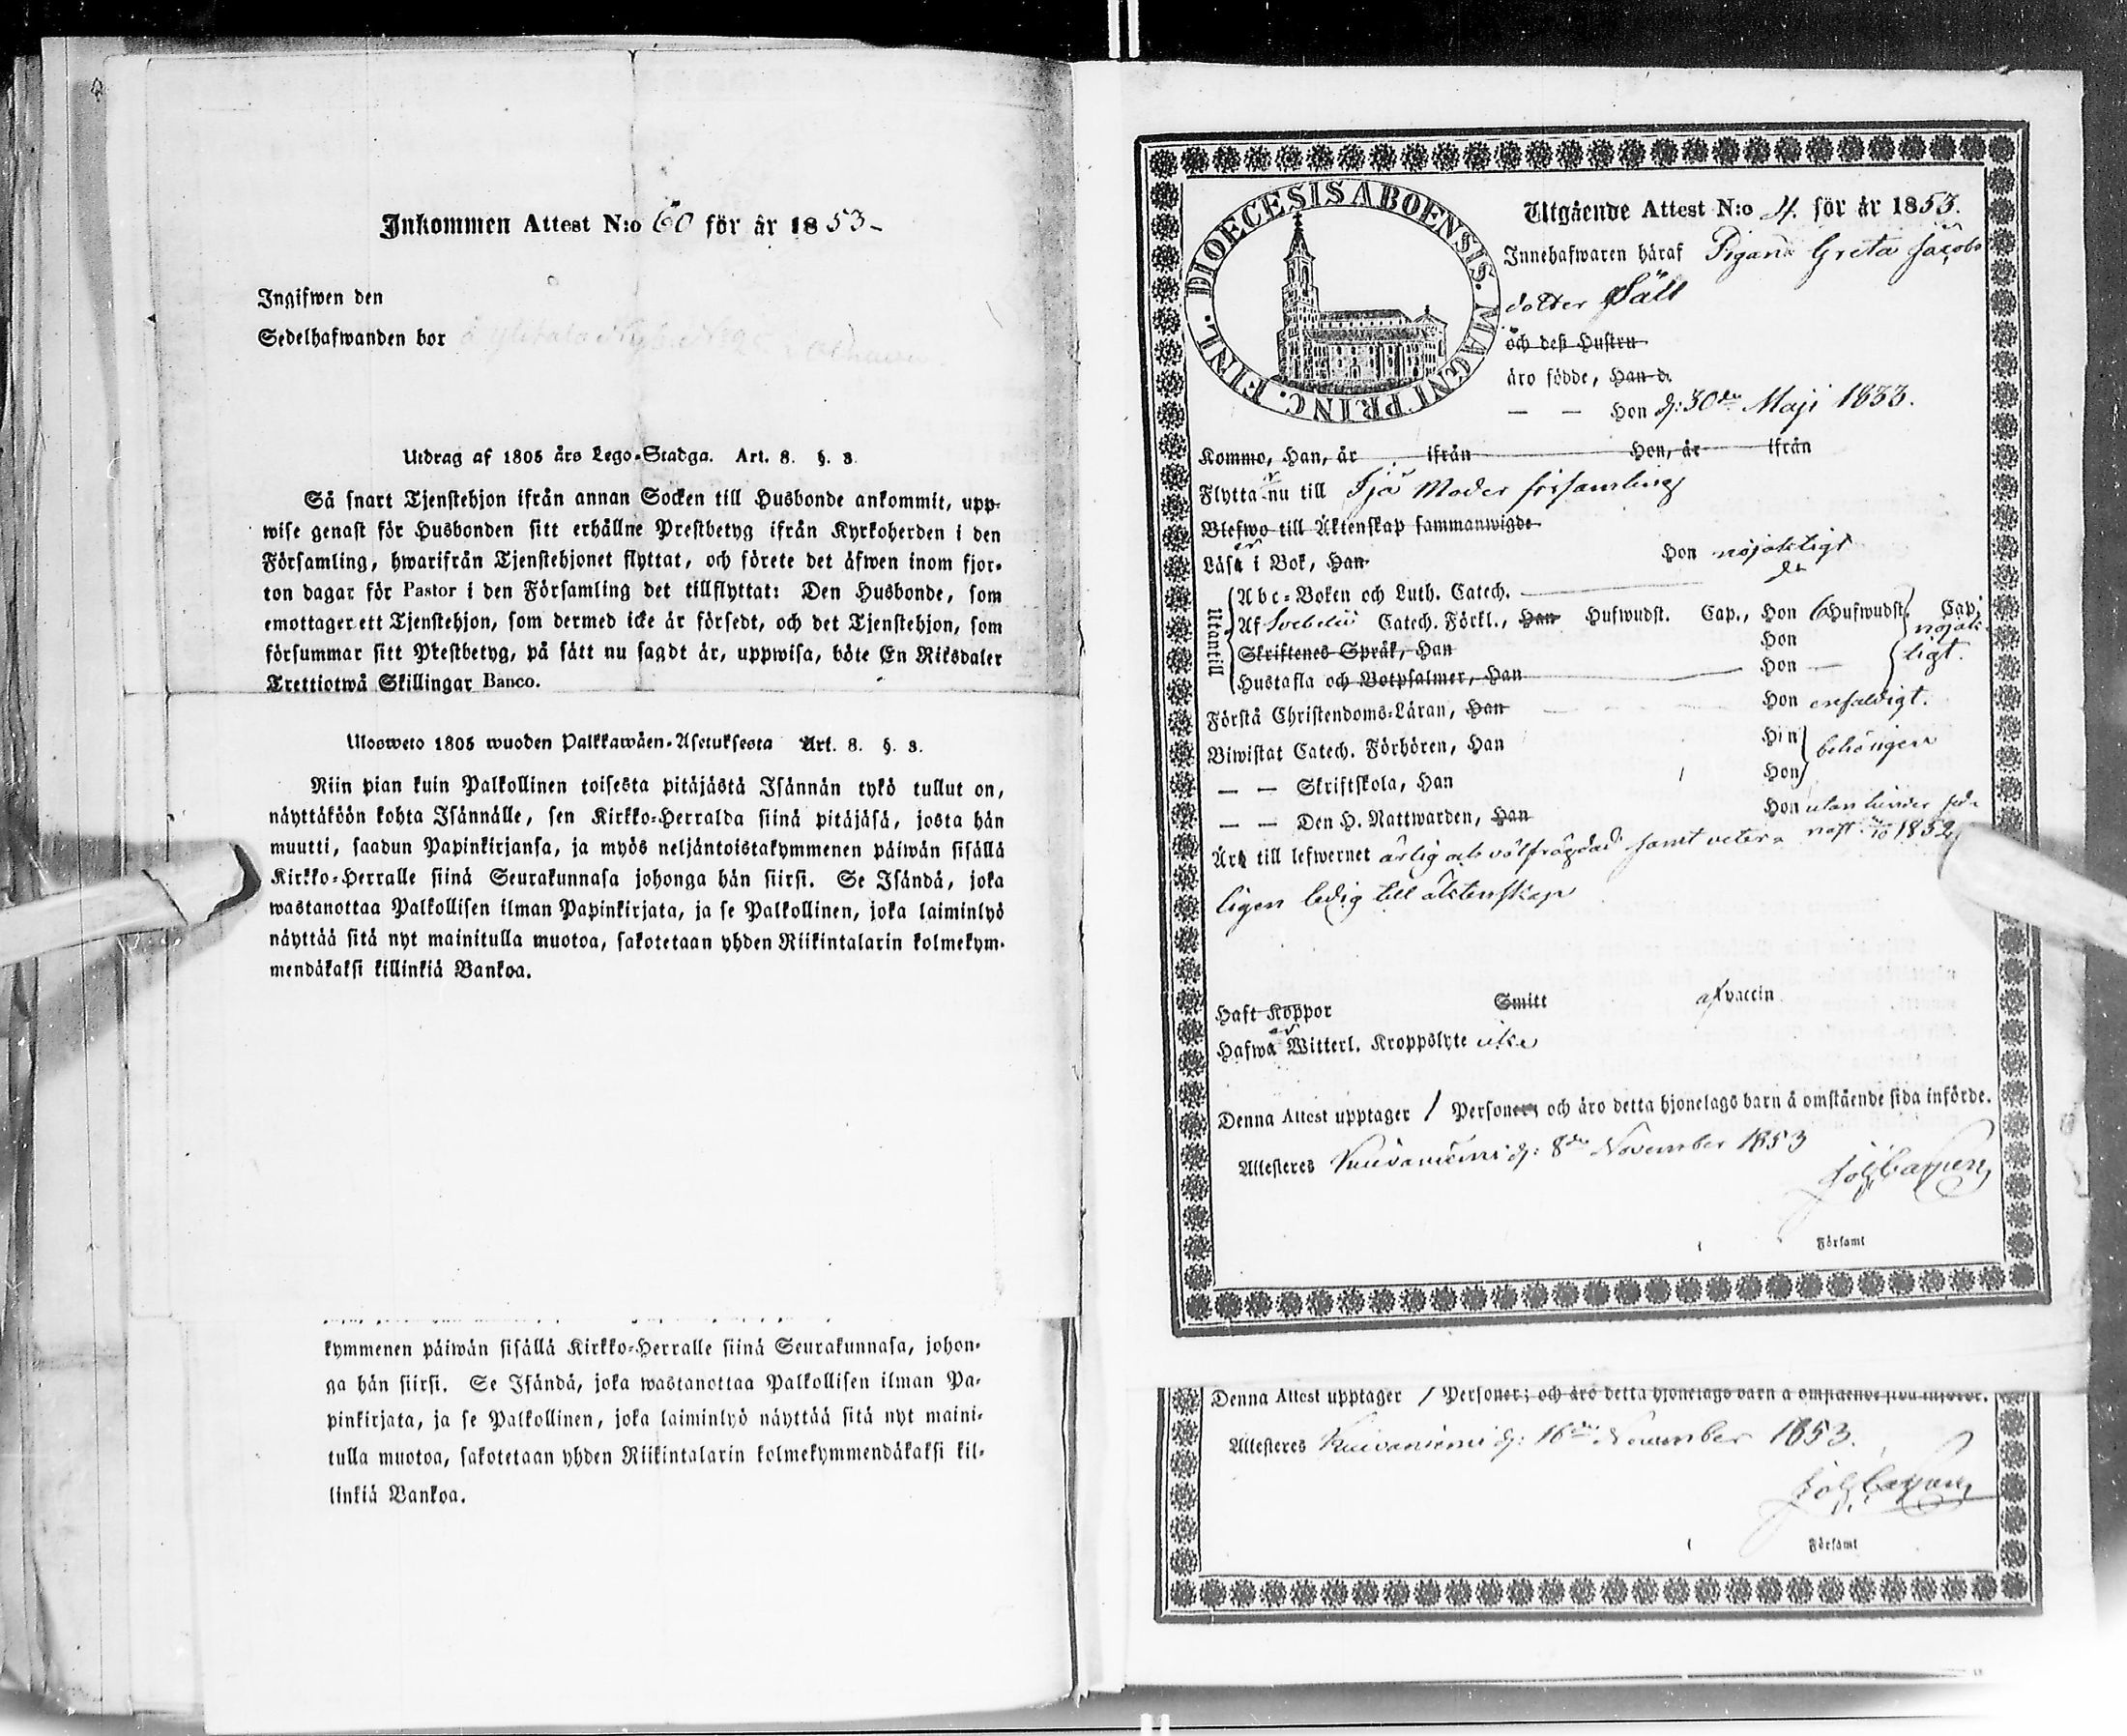 Inkommen Attest N:o 60 för år 1853
Ingifwen den
Sedelhafwanden bor å Ylitalo
Utdrag af 1805 års Lego-Stadga. Art. 8. §. 3.
Så snart Tjenstehjon ifrån annan Socken till Husbonde ankommit, upp-
wise genast för Husbonden sitt erhållne Prestbetyg ifrån Kyrkoherden i den
Församling, hwarifrån Tjenstehjonet flyttat, och förete det äfwen inom fjor-
ton dagar för Pastor i den Församling det tillflyttat: Den Husbonde, som
emottager ett Tjenstehjon, som dermed icke är försedt, och det Tjenstehjon, som
försummar sitt Prestbetyg, på sätt nu sagdt är, uppwisa, böte En Riksdaler
Trettiotwå Skillingar Banco.
Ulosweto 1805 wuoden Palkkawäen-Asetuksesta Art. 8. §. 3.
Niin pian kuin Palkollinen toisesta pitäjästä Isännän tykö tullut on,
näyttäköön kohta Isännälle, sen Kirkko-Herralda siinä pitäjäsä, josta hän
muutti, saadun Papinkirjansa, ja myös neljäntoistakymmenen päiwän sisällä
Kirkko-Herralle siinä Seurakunnasa johonga hän siirsi. Se Isändä, joka
wastanottaa Palkollisen ilman Papinkirjata, ja se Palkollinen, joka laiminlyö
näyttää sitä nyt mainitulla muotoa, sakotetaan yhden Riikintalarin kolmekym-
mendäkaksi killinkiä Bankoa.
kymmenen päiwän sisällä Kirkko-Herralle siinä Seurakunnasa, johon-
ga hän siirsi. Se Isändä, joka wastanottaa Palkollisen ilman Pa-
pinkirjata, ja se Palkollinen, joka laiminlyö näyttää sitä nyt maini-
tulla muotoa, sakotetaan yhden Riikintalarin kolmekymmendäkaksi kil-
linkiä Bankoa.
DIOECESIS ABOENSIS. MAGNI PRINC. FINL.
Utgående Attest N:o 4. för år 1853.
Innehafwaren häraf Pigan Greta Jacobs
dotter Säll
och deß Hustru
äro födde, Han d.
— — Hon d: 30de Maji 1833.
Kommo, Han, år ifrån Hon, år ifrån
Flyttar nu till Ijo Moder församling
Blefwo till Äktenskap sammanwigde
Läser i Bok, Han Hon nöjaktigt
Utantill
Abc-Boken och Luth. Catech. do
Af Svebelii Catech. Förkl., Han Hufwudst. Cap., Hon 6 Hufwudst. Cap.
Skriftenes Språk, Han Hon nöjak-
Hustafla och Botpsalmer, Han Hon — ligt.
Förstå Christendoms-Läran, Han Hon enfaldigt.
Biwistat Catech. Förhören, Han Hon behörigen
— — Skriftskola, Han Hon
— — Den H. Nattwarden, Han Hon utan hinder sed-
nast 1852
Är till lefwernet ärlig och välfrägdad samt veter-
ligen ledig till äktenskap
Haft Koppor Smitt af vaccin
Hafwer Witterl. Kroppslyte icke
Denna Attest upptager 1 Personer; och äro detta hjonelags barn å omstående sida införde.
Attesteras Kuivaniemi d: 8de November 1853
Församl
Denna Attest upptager 1 Personer; och äro detta hjonelags barn å omstående sida införde.
Attesteras Kuivaniemi d: 16de November 1853.
Församl